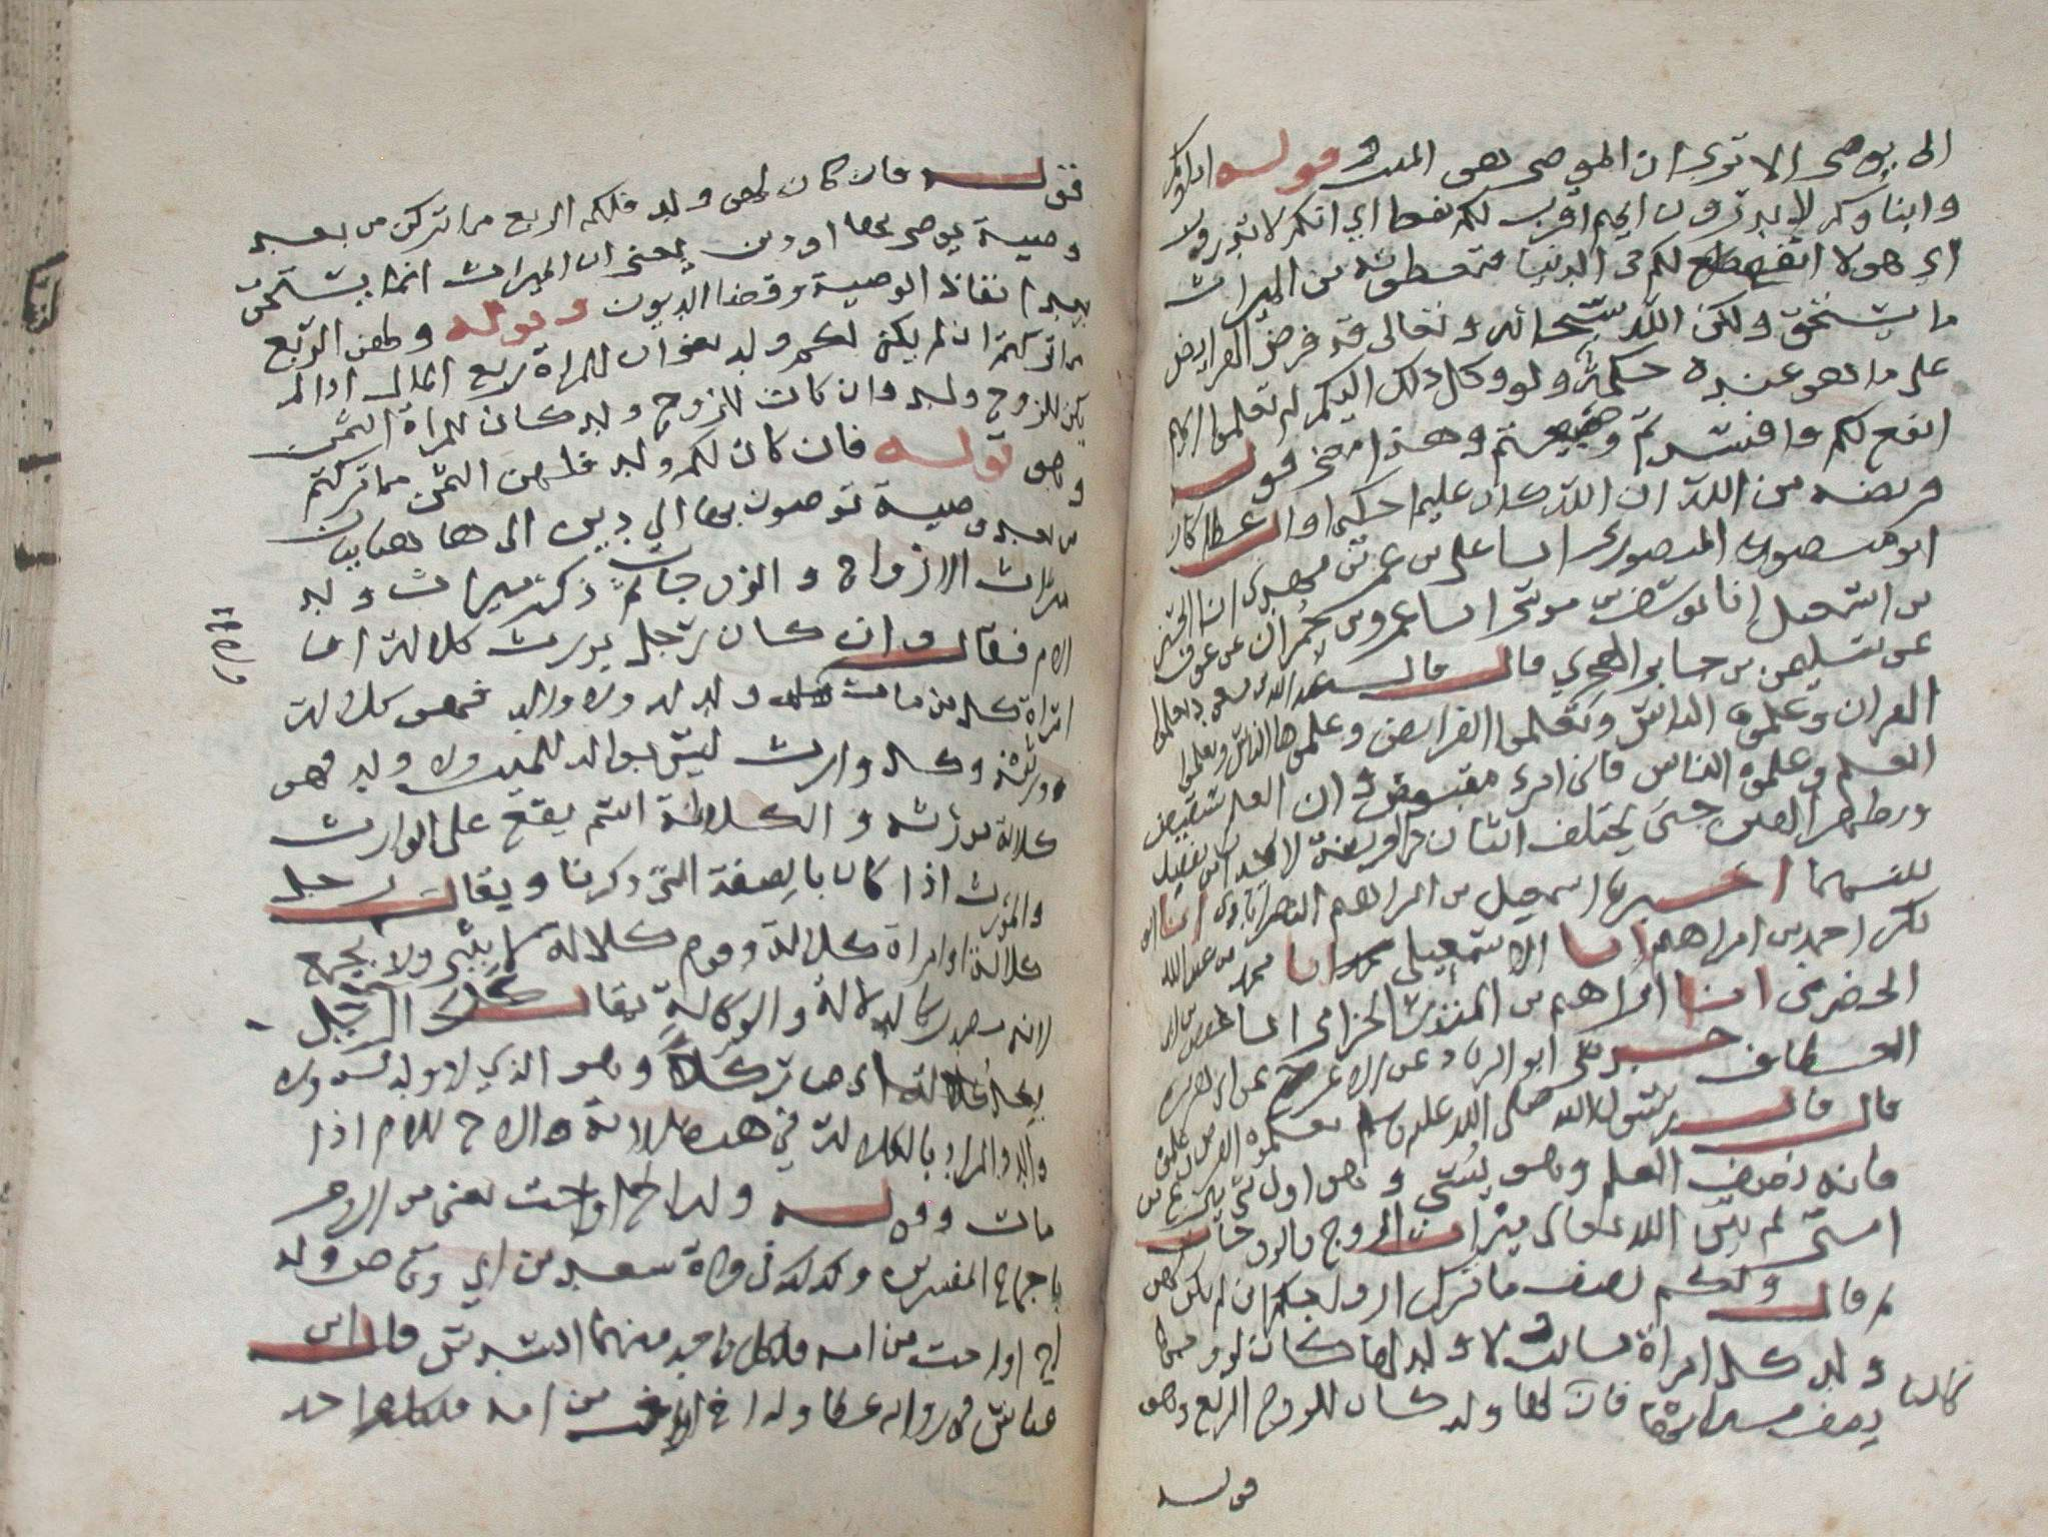 الى يوصى الا ترى ان الموصى هو الميت وقوله اباوكم
وابناوكم لا تدرون ايهم اقرب لكم نفعا اي انكم لا تدرون
اي هولا انفع لكم في الدنيا فتعطونه من الميراث
ما يستحق ولكن الله سبحانه وتعالى قد فرض الفرايض
على ما هو عنده حكمة ولو وكل ذلك اليكم لم تعلموا ايهم
انفع لكم وافسدتم وضيعتم وهذا معنى قوله
فريضه من الله ان الله كان عليما حكيما
ابو منصور المنصوري انا على بن عمر بن مهدي انا
بن اسمعيل انا يوسف بن موسى انا عمرو بن حمران عن عوف
عن سليمن بن جابر الهجري قال قال عبد الله بن مسعود تعلموا
القران وعلموه الناس وتعلموا الفرايض وعلموها الناس وتعلموا
العلم وعلموه الناس فاني امرء مقبوض وان العلم سيقبض
وتظهر الفتن حتى يختلف اثنان في الفريضة لا يجدان من يفصل
بينهما اخبرنا اسمعيل بن ابراهيم النصراباذي انا ابو
بكر احمد بن ابراهيم انا الاسمعيلي انا محمد بن عبد الله
الحضرمي انا ابراهيم بن المنذر الحزامي انا حفص بن ابي
العطاف حدثني ابو الزناد عن الاعرج عن ابي هريرة
قال قال رسول الله صلى الله عليه وسلم تعلموا الفرايض
فانه نصف العلم وهو ينسى وهو اول شي ينزع من
امتي ثم بين الله تعالى ميراث الزوج والزوجات
فقال ولكم نصف ما ترك ازواجكم ان لم يكن لهن
ولد كل امراة ماتت ولا ولد لها كان لزوجها
نصف ميراثها فان كان لها ولد كان للزوج الربع وهو
قوله
فقوله فان كان لهن ولد فلكم الربع مما تركن من بعد
وصية يوصى بها او دين يعني ان الميراث انما يستحق
بعد انفاذ الوصية وقضا الديون وقوله ولهن الربع
مما تركتم ان لم يكن لكم ولد يعني ان للمراة ربع المال اذا لم
يكن للزوج ولد وان كان للزوج ولد كان للمراة الثمن
وهو قوله فان كان لكم ولد فلهن الثمن مما تركتم
من بعد وصية توصون بها الى دين الى ها هنا بيان
ميراث الازواج والزوجات ثم ذكر ميراث ولد
الام فقال وان كان رجل يورث كلالة او
امراة كل من مات ولا ولد له ولا والد فهو كلالة
ورثته وكل وارث ليس بوالد للميت ولا ولد فهو
كلالة مورثه والكلالة اسم يقع على الوارث
والمورث اذا كان بالصفة التي ذكرنا ويقال رجل
كلالة وامراة كلالة وقوم كلالة لا يثنى ولا يجمع
لانه مصدر كالدلالة والوكالة يقال كل الرجل
يكل كلالة اي صار كلا وهو الذي لا ولد له ولا
والد والمراد بالكلالة في هذه الاية الاخ للام اذا
مات وقوله وله اخ او اخت يعني من الام
باجماع المفسرين وكذلك في قراة سعد بن ابي وقاص وله
اخ او اخت من امه فلكل واحد منهما السدس قال ابن
عباس في رواية عطا وله اخ او اخت من امه فلكل واحد